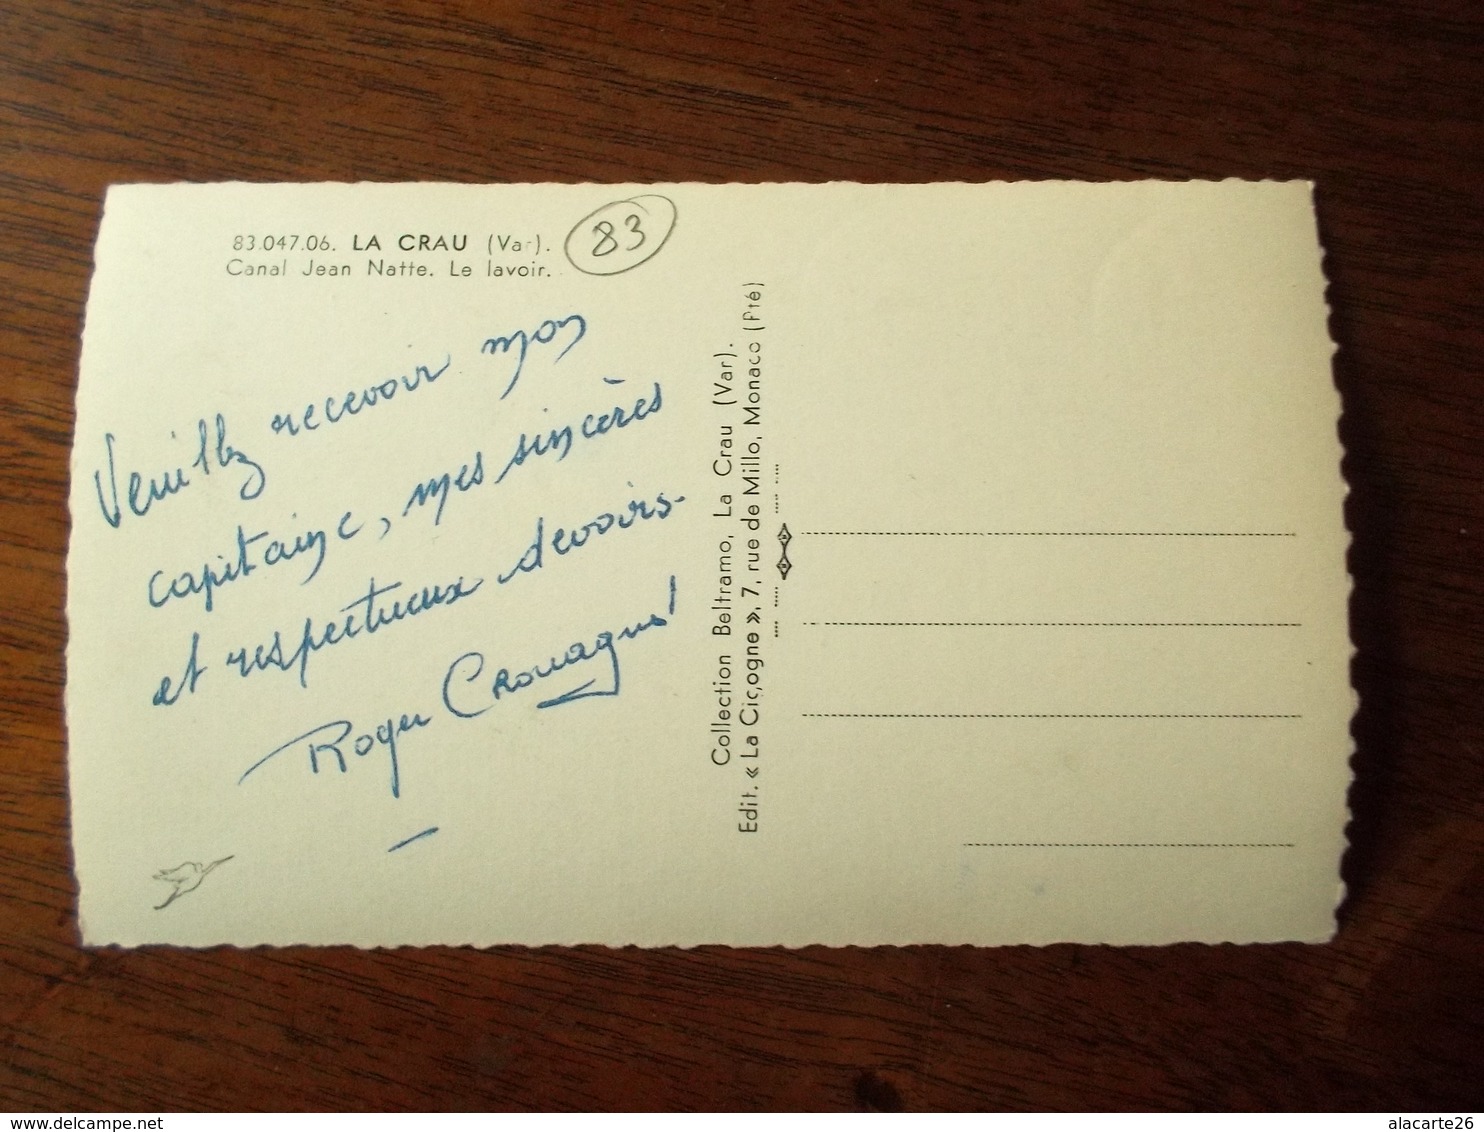 83.047.06. LA CRAU (Var).
Canal Jean Natte. Le lavoir.
83
Veuillez recevoir mon
capitaine, mes sincères
et respectueux devoirs.
Roger
Collection Beltramo, La Crau (Var).
Edit. « La Cigogne », 7, rue de Millo, Monaco (Pté)
delcampe.net
alacarte26